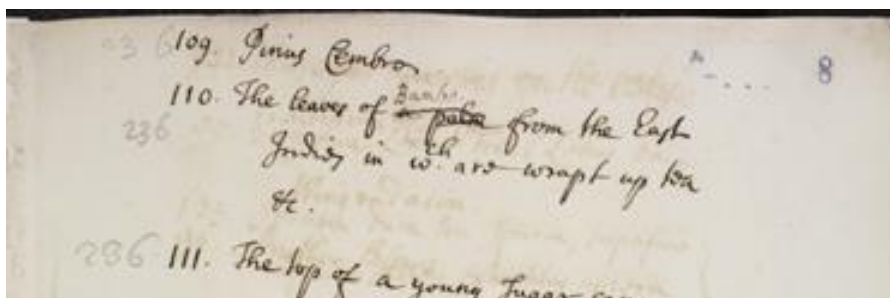 109. Pinus Cembro
8
110. The leaves of a palm from the East
Indies in wch are wrapt up tea
&c.
236
286 111. The top of a young Sugar